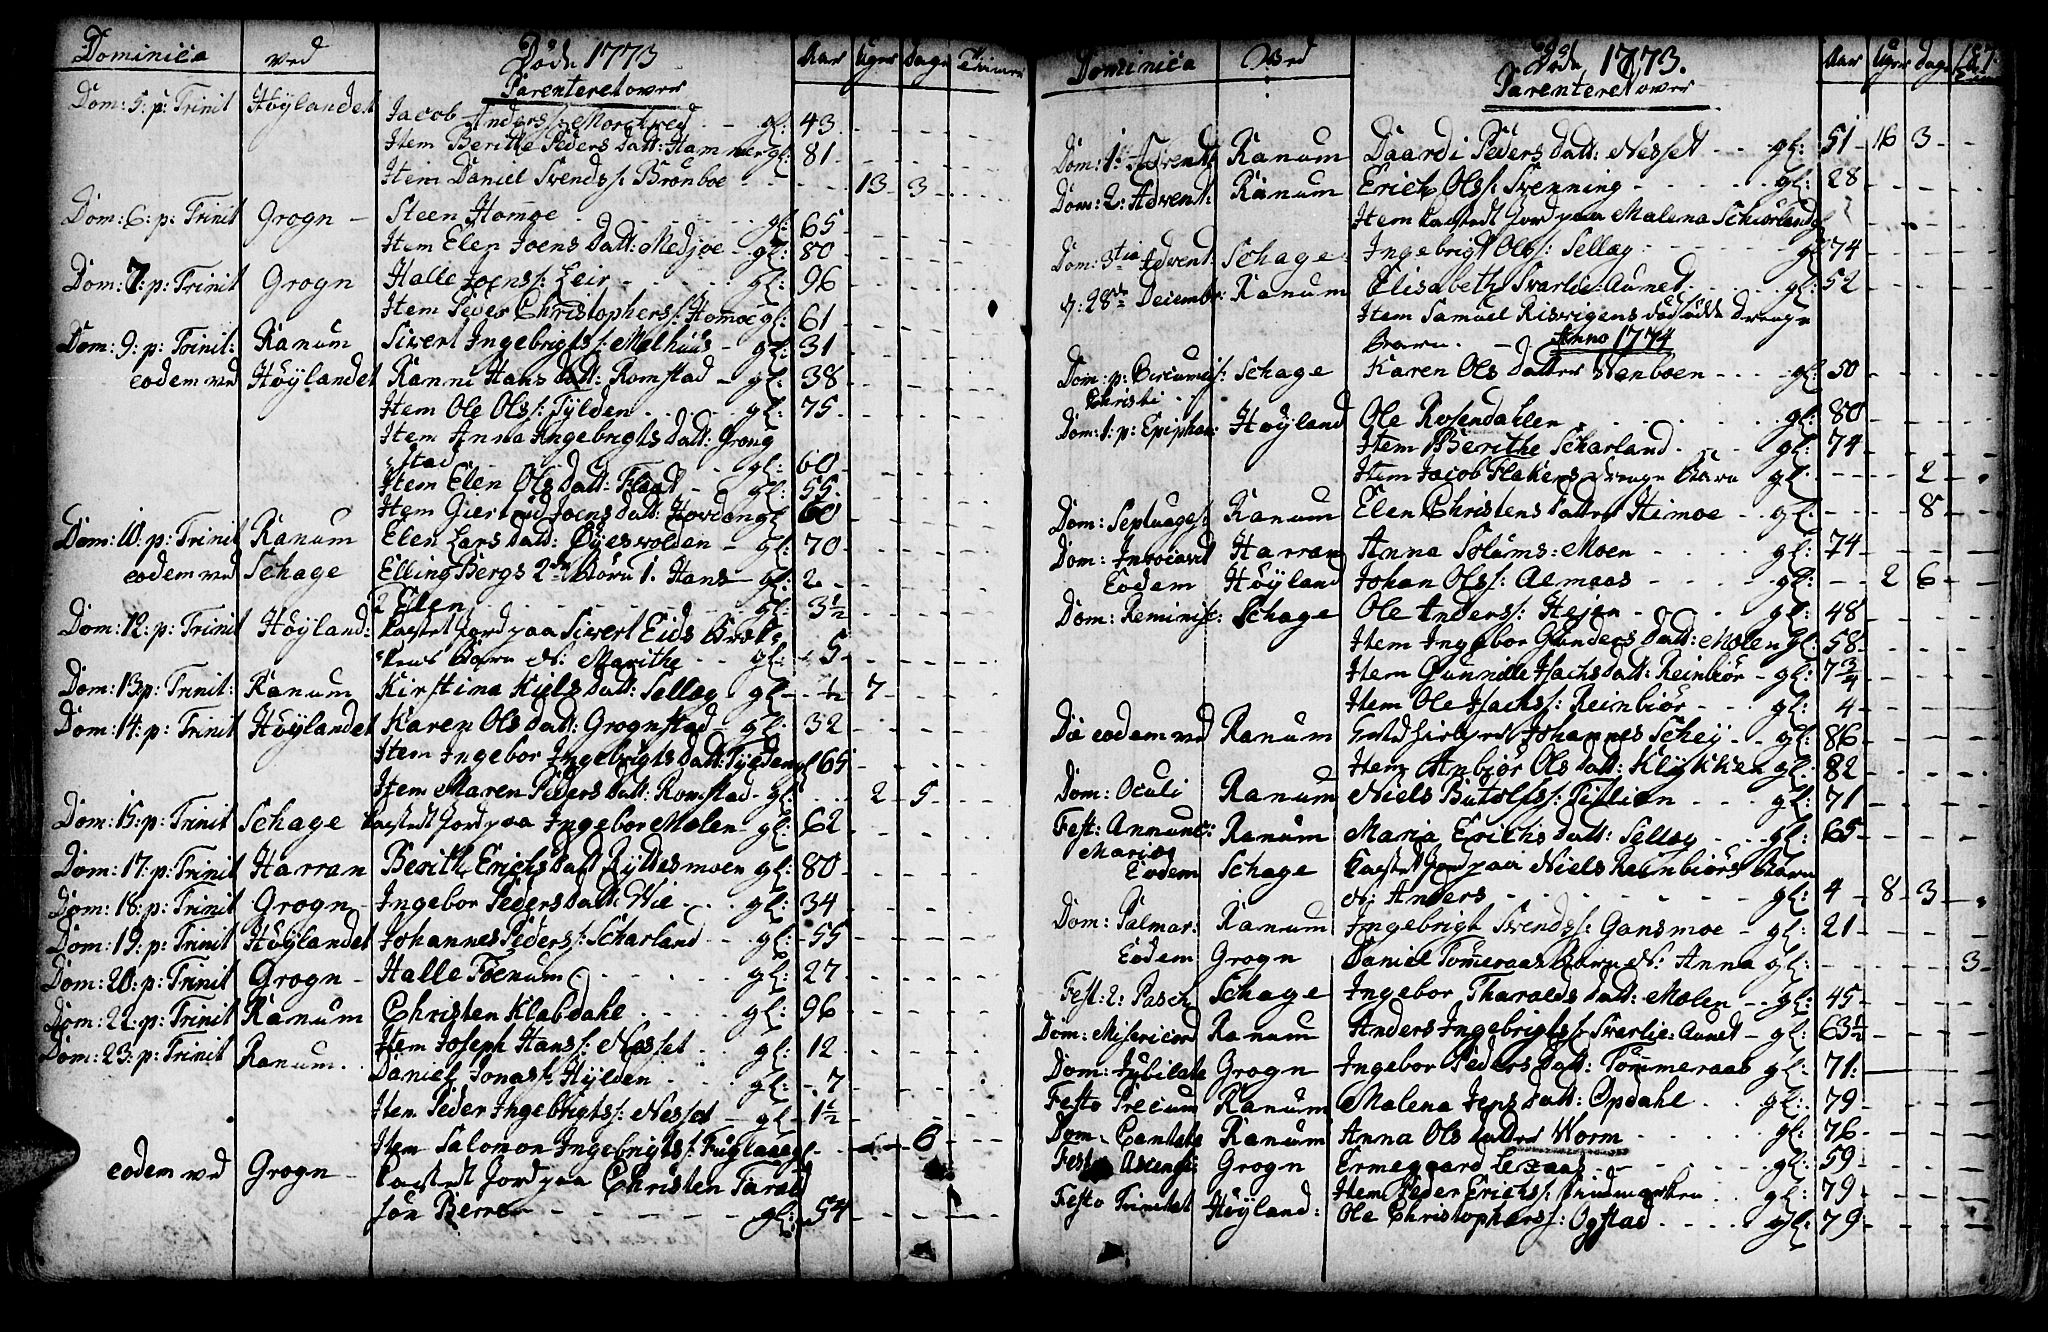 Dominica ved Döde 1773 Aar Uger Dage Timer
Parenteret over
Dom: 5: p: Trinit Höylandet Jacob Anderss: Morchved - gl: 43
Item Berithe Peders datt: Hammer gl: 81
Item Daniel Svends s: Brönboe 13 3
Dom: 6: p: Trinit Grogn - Steen Homoe gl: 65
Item Elen Joens datt: Medjöe - gl: 80
Dom: 7: p: Trinit Grogn Halle Joens s: Leir gl: 96
Item Peder Christophers s: Homoe gl: 61
Dom: 9: p: Trinit: Ranum Sivert Ingebrigts s: Melhuus - gl: 31
eodem ved Höylandet Ranni Hans datt: Romstad - gl: 38
Item Ole Ols s: Tylden gl: 75
Item Anna Ingebrigts datt: Grong
stad gl: 60
Item Elen Ols datt: Flaat - gl: 55
Item Giertrud Joens datt: gl 60
Dom: 10: p: Trinit Ranum Elen Lars datt: Öyesvolden - gl: 70
eodem ved Schage Elling Bergs 2de Börn 1. Hans gl: 2
2 Elen gl: 3 1/2
Dom: 12: p: Trinit Höyland: Kastet Jord paa Sivert Eids
Barn N: Marithe gl: 5
Dom: 13 p: Trinit: Ranum Kirstina Niels datt: Sellæg gl - 1/2 7
Dom: 14: p: Trinit Höylandet Karen Ols datt: Grognstad - gl: 32
Item Ingebor Ingebrigts datt: Tylden gl 65
Item Maren Peders datt: Romstad - gl: 2 5
Dom: 15: p: Trinit Schage Kastet Jord paa Ingebor Molen - gl: 62
Dom: 17: p: Trinit Harran Berith Erichs datt Ryddesmoen gl: 80
Dom: 18: p: Trinit Grogn - Ingebor Peders datt: Vie gl: 34
Dom: 19: p: Trinit Höylandet Johannes Peders s: Scharland gl: 55
Dom: 20: p: Trinit Grogn - Halle Foenum gl: 27
Dom: 22: p: Trinit Ranum Christen Klabdahl gl: 96
Item Joseph Hans s: Nesset gl: 12
Dom: 23: p: Trinit Ranum. Daniel Jonas s: Hylden gl: 7
Item Peder Ingebrigts s: Nesset - gl: 1 1/2
Item Salomon Ingebrigts s: gl 6
eodem ved Grogn - Kastet Jord paa Christen Tarald
sön Berre gl: 54
Dominica Ved Döde 1773. Aar Uger Dage
Parenteret over
Dom: 1: Advent Ranum Daardi Peders datt: Nesset gl: 51 16 3
Dom: 2: Advent: Ranum Erich Ols s: Svenning gl: 28
Item Kastet Jord paa Malena Schiörland
Dom: 3tia Advent Schage Ingebrigt Ols s: Sellæg gl 74
d: 28de Decembr: Ranum Elisabeth Svarlie: Aunet gl: 52
Item Samuel Risvigens dödfödde drenge
Barn. - Anno 1774
Dom: p: Circumcis: Schage Karen Ols datter Venboen gl: 50
Christi
Dom: 1: p: Epiphan: Höyland Ole Rosendahlen gl: 80
Item Berithe Scharland gl: 74
Item Jacob Flakens drenge Barn gl: 2
Dom: Septuages: Ranum Elen Christens datter Himoe gl: 8
Dom: Invocavit Harran Anna Solums: Moen gl: 74
Eodem Höyland Johan Ols s: Almaas gl: 2 6
Dom: Reminisc: Schage Ole Anders s: Hejen gl: 48
Item Ingebor Gunders datt: Molen gl: 58
Item Gunnille Isachs datt: Reinbiör - gl: 7 3/4
Item Ole Isachs s: Reinbiör gl: 4
Die eodem ved Ranum Johannes Schey gl: 86
Item Anbiör Ols datt: Klykken gl: 82
Dom: Oculi Ranum Niels Butolfs s: gl: 71
Fest: Annunc: Ranum Maria Erichs datt: Sellæg gl: 65
Mariæ
Eodem Schage Kastet Jord paa Niels Reinbiörs Barn
N: Anders gl: 4 8 3
Dom: Palmar: Ranum Ingebrigt Svends s: Gansmoe gl: 21
Eodem Grogn Daniel Tömeraas Barn N: Anna gl: 3
Fest: 2: Pasch Schage Ingebor Tharalds datt: Molen gl: 45
Dom: Misericord Ranum Anders Ingebrigts s: Svarlie: Aunet - gl: 63 1/2
Dom: Jubilate Grogn Ingebor Peders datt: Tömmeraas gl: 71
Festo Precum Ranum Malena Jens datt: Opdahl gl: 79
Dom. Cantate Ranum Anna Ols datter Worm gl: 76
Fest Ascens: Grogn Ermegaard Lexaas gl: 59
Item Peder Erichs s: gl: 79
Festo Trinitat Höyland: Ole Christophers s: Ogstad gl: 79